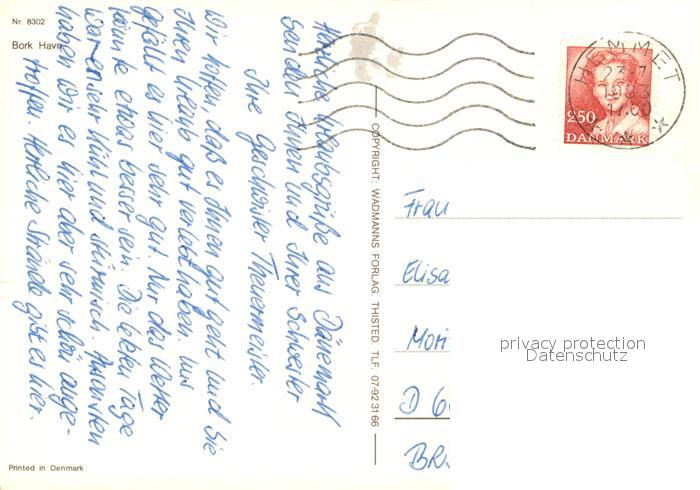 Nr. 8302
Bork Havn
Herzliche Urlaubsgrüße aus Dänemark
senden Ihnen und Ihrer Schwester
Ihre Geschwister Theuermeister.
Wir hoffen, daß es Ihnen gut geht und Sie
Ihren Urlaub gut verlebt haben. Uns
gefällt es hier sehr gut. Nur das Wetter
könnte etwas besser sein. Die letzten Tage
waren sehr kühl und stürmisch. Ansonsten
haben wir es hier aber sehr schön ange-
troffen. Herrliche Strände gibt es hier.
Printed in Denmark
COPYRIGHT: WADMANNS FORLAG THISTED. TLF. 07-92 31 66
HEMMET
23.7
17.00
250
DANMARK
Frau
Elisa
Mori
D 6
BR
privacy protection
Datenschutz